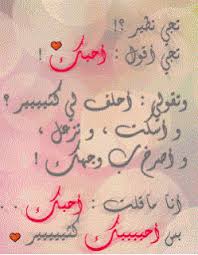 تجي نطير ؟!
تجي أقول : أحبك !
وتقولي : أحلف لي كثيييير ؟
و أسكت ، و تزعل ،
و أصرخ ب وجهك !
أنا ماقلت : أحبك . .
بس أحيييبك كثيييير